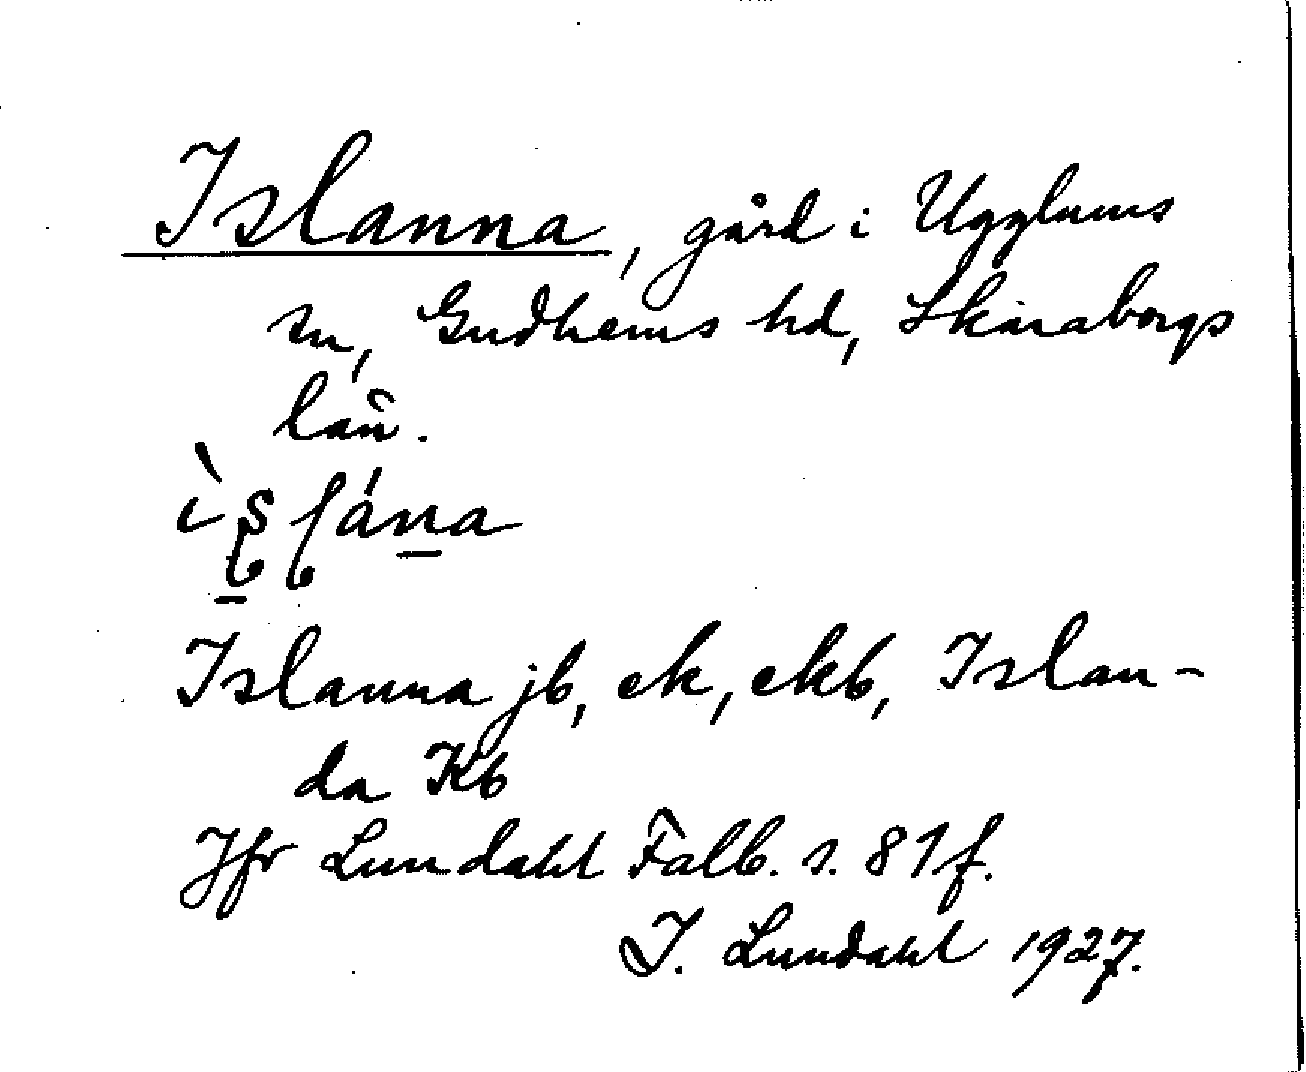 Islanna, gård i Ugglums
sn, Gudhems hd, Skaraborgs
län.
Islanna jb, ek, ekb, Islan-
da Kb
Jfr Lundahl Falb. s. 81 f.
I. Lundahl 1927.